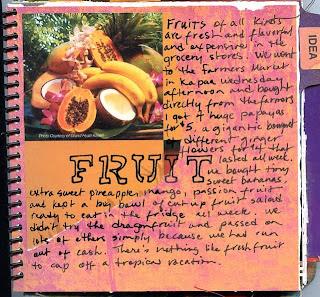 Fruits of all kinds
are fresh and flavorful
and expensive in the
grocery stores. We went
to the farmers market
in Kapaa Wednesday
afternoon and bought
directly from the farmers
I got 4 huge papayas
for $5, a gigantic bouquet
of different ginger
flowers for $7 that
lasted all week.
we bought tiny
sweet bananas,
Photo Courtesy of Grand Hyatt Kauai
FRUIT
extra sweet pineapple, mango, passion fruit
and kept a big bowl of cut up fruit salad
ready to eat in the fridge all week. we
didn't try the dragonfruit and passed on
lots of others simply because we had run
out of cash. There's nothing like fresh fruit
to cap off a tropical vacation.
IDEA